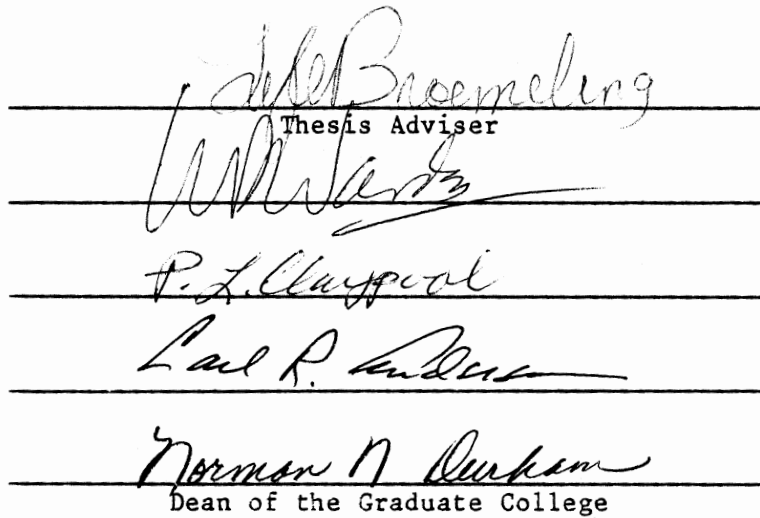 Broemeling
Thesis Adviser
P. L. Claypool
Carl R. Anderson
Norman N Durham
Dean of the Graduate College